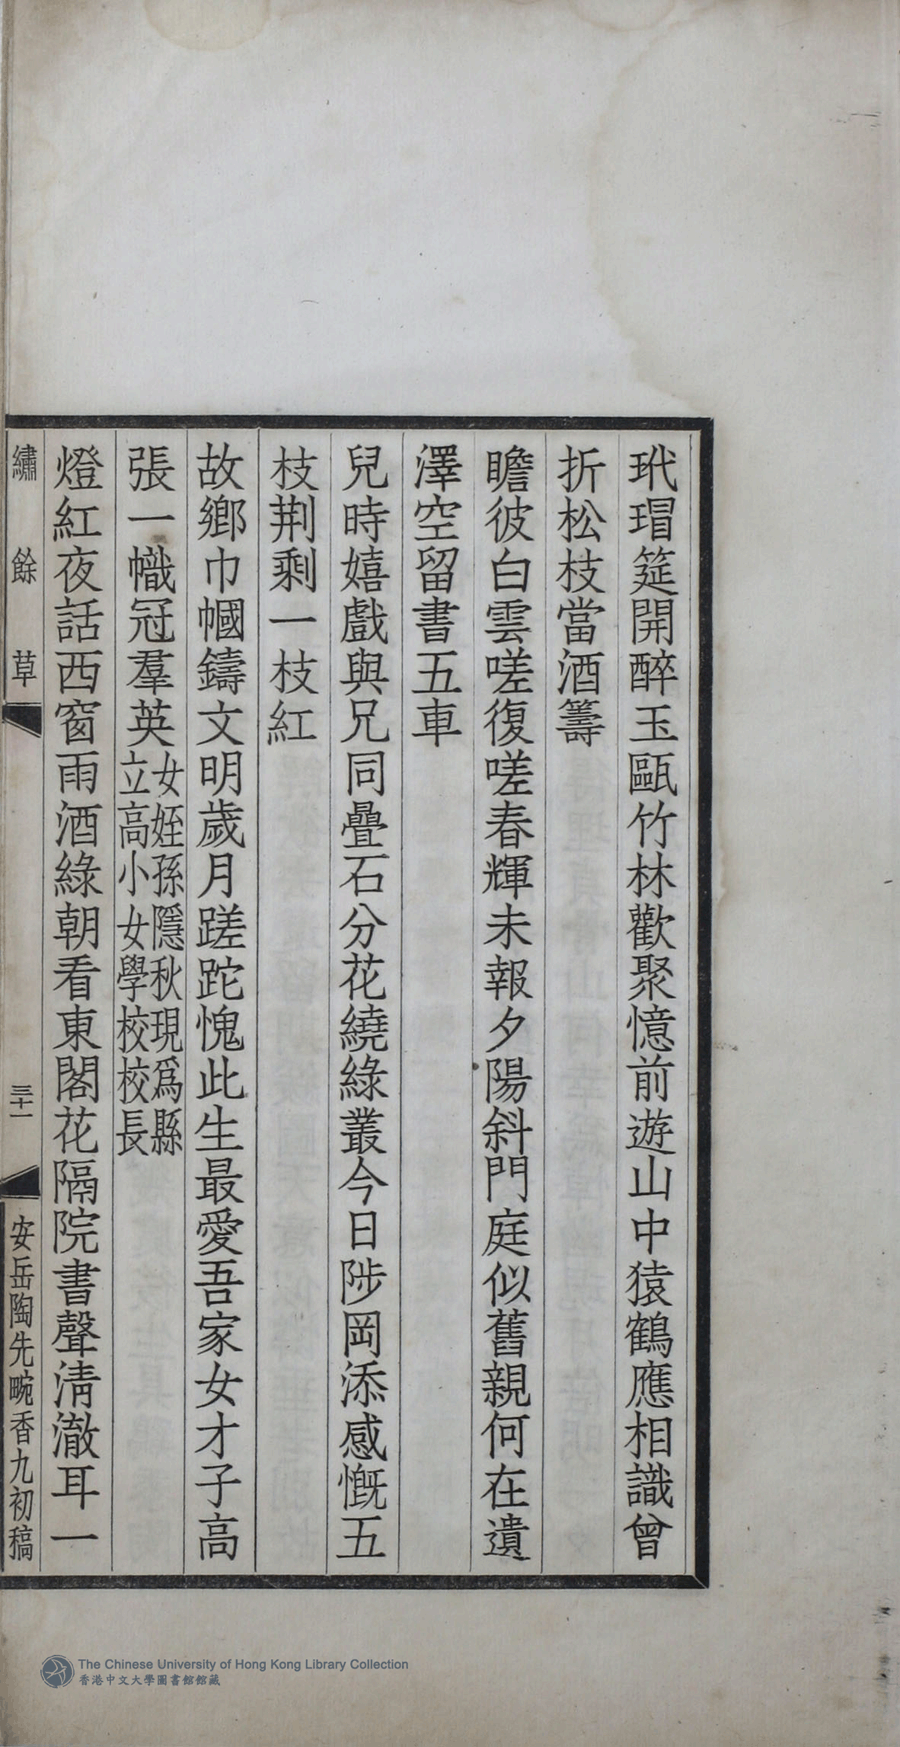 玳瑁筵開醉玉甌竹林歡聚憶前遊山中猿鶴應相識曾
折松枝當酒籌
瞻彼白雲嗟復嗟春輝未報夕陽斜門庭似舊親何在遺
澤空留書五車
兒時嬉戲與兄同疊石分花繞綠叢今日陟岡添感慨五
枝荆剩一枝紅
故鄉巾幗鑄文明歲月蹉跎愧此生最愛吾家女才子高
張一幟冠羣英女姪孫隱秋現爲縣立高小女學校校長
燈紅夜話西窗雨酒綠朝看東閣花隔院書聲清澈耳一
繡餘草
三十一
安岳陶先畹香九初稿
The Chinese University of Hong Kong Library Collection
香港中文大學圖書館館藏